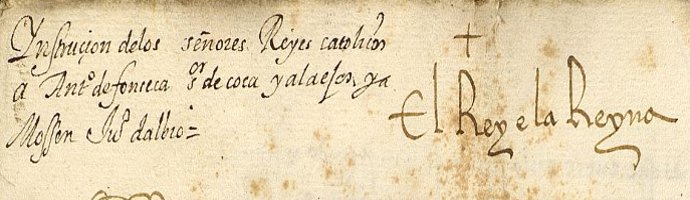 Ynstruçion delos señores Reyes catolicos
a Antº de fonseca sᵒʳ de coca y alaejos, y a
Mossen Juº dalbio =
+
El Rey e la Reyna